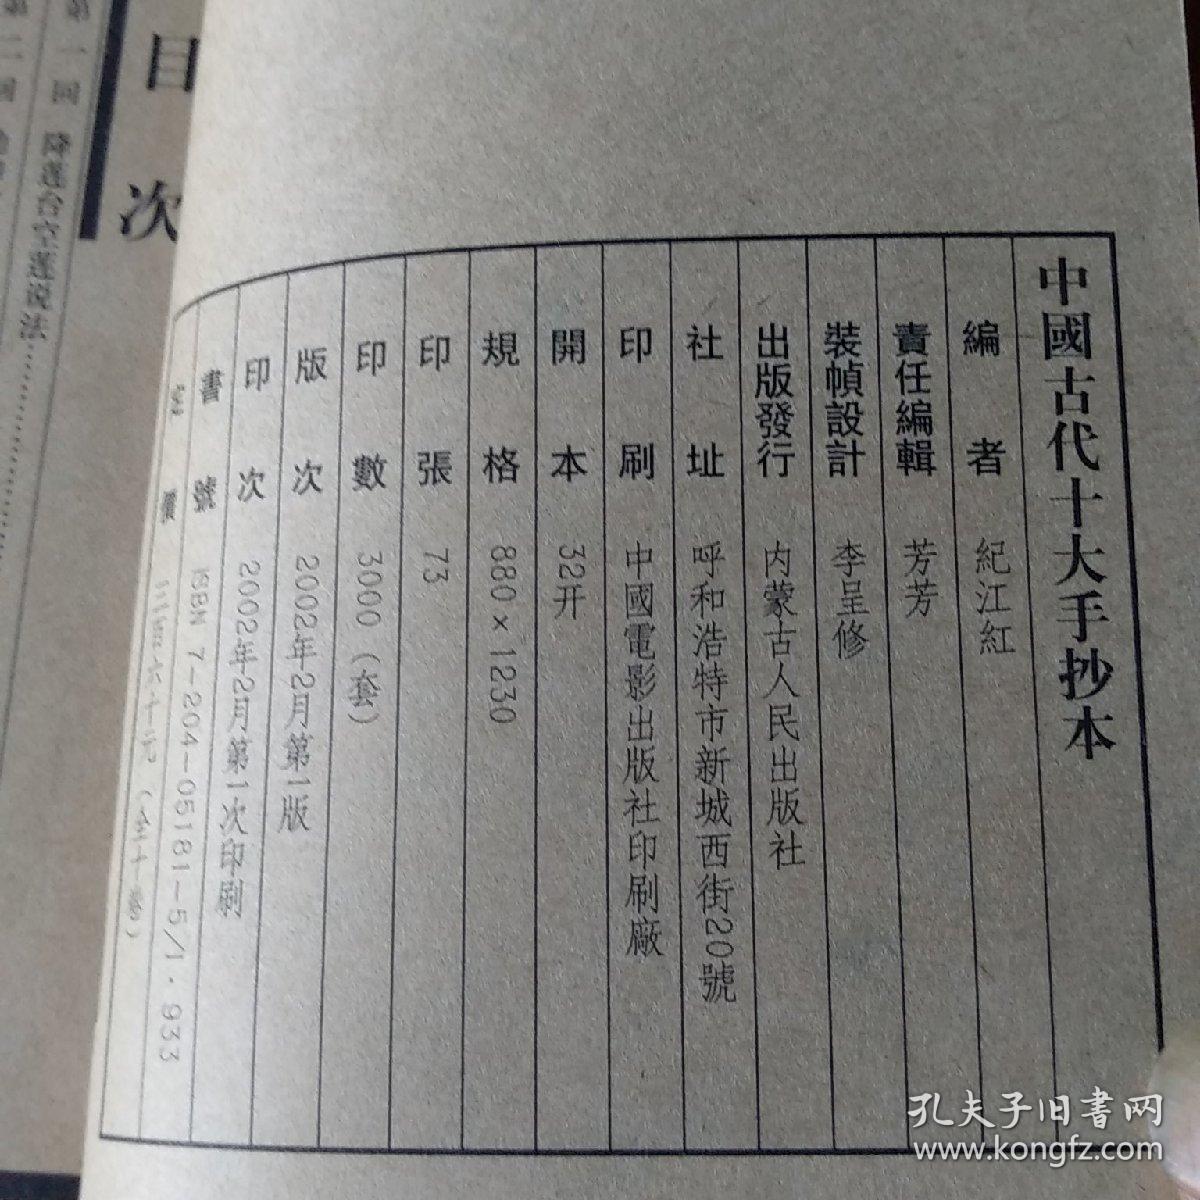 中國古代十大手抄本
編者 紀江紅
責任編輯 芳芳
裝幀設計 李呈修
出版發行 内蒙古人民出版社
社址 呼和浩特市新城西街20號
印刷 中國電影出版社印刷廠
開本 32开
規格 880×1230
印張 73
印數 3000（套）
版次 2002年2月第一版
印次 2002年2月第一次印刷
書號 ISBN 7-204-05181-5/I·933
定價 六十元（全十卷）
目次
第一回 降蓮台空蓮说法
第二回
孔夫子旧书网
www.kongfz.com